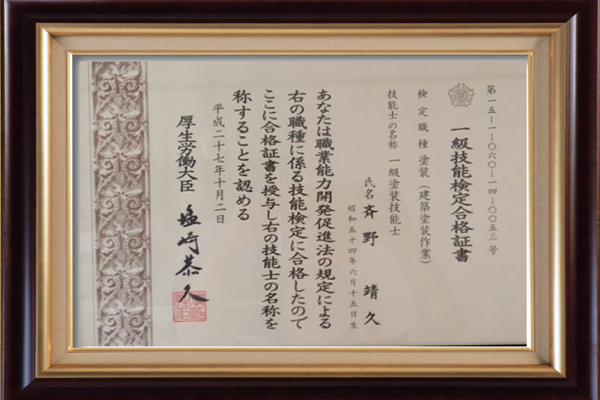 第一五―一―〇六〇―一四―〇〇五三号
一級技能検定合格証書
検定職種 塗装（建築塗装作業）
技能士の名称 一級塗装技能士
氏名 斉野 靖久
昭和五十四年六月十五日生
あなたは職業能力開発促進法の規定による
右の職種に係る技能検定に合格したので
ここに合格証書を授与し右の技能士の名称を
称することを認める
平成二十七年十月二日
厚生労働大臣 塩崎恭久